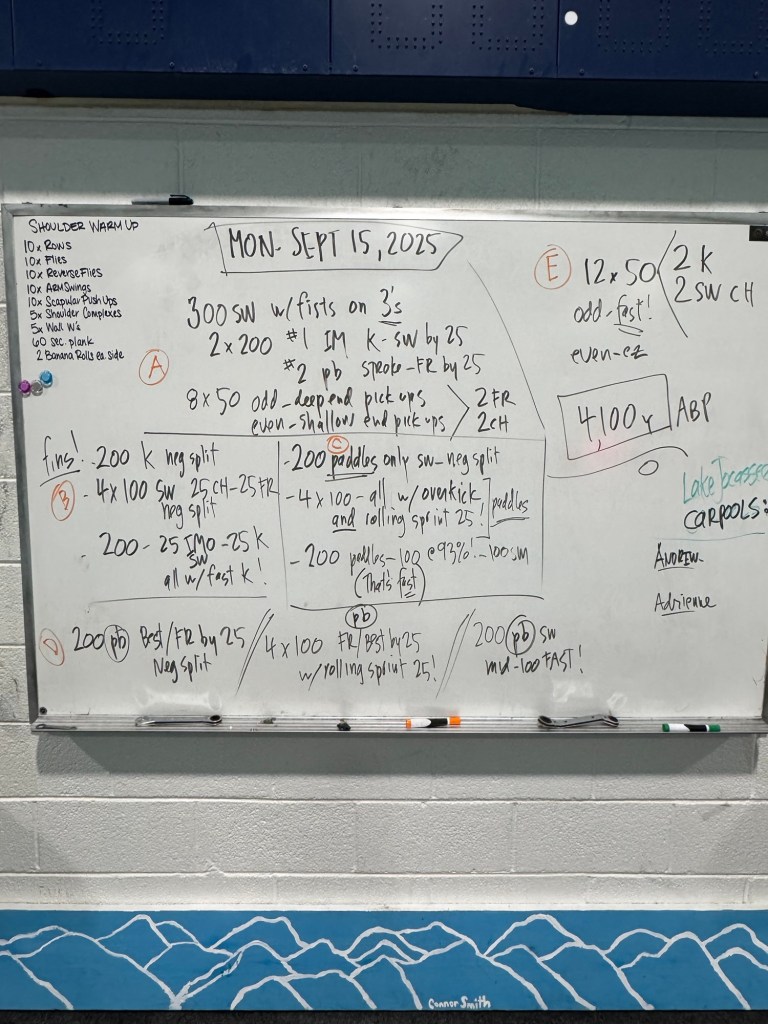 SHOULDER WARM UP
10x ROWS
10x Flies
10x Reverse Flies
10x ARM Swings
10x Scapular Push Ups
5x Shoulder Complexes
5x Wall W's
60 sec. plank
2 Banana Rolls ea. side
MON- SEPT 15, 2025
A
300 SW w/fists on 3's
2 x 200 #1 IM K-SW by 25
#2 pb stroke-FR by 25
8 x 50 odd-deep end pick ups
even-shallow end pick ups
2 FR
2 CH
fins!
B
- 200 K neg split
- 4x100 SW 25 CH-25 FR
neg split
- 200 - 25 IMO - 25 K
SW
all w/ fast K!
C
- 200 paddles only sw-neg split
- 4 x 100 - all w/ overkick
and rolling sprint 25!
paddles
- 200 paddles-100 @93%!-100sm
(That's fast)
D
200 pb Best/FR by 25
Neg split
pb
4 x 100 FR/Best by 25
w/rolling sprint 25!
200 pb SW
mid-100 FAST!
E
12 x 50
2 K
2 SW CH
odd-fast!
even-ez
4,100y ABP
Lake Jocassee
CARPOOLS:
ANDREW-
Adrienne
Connor Smith